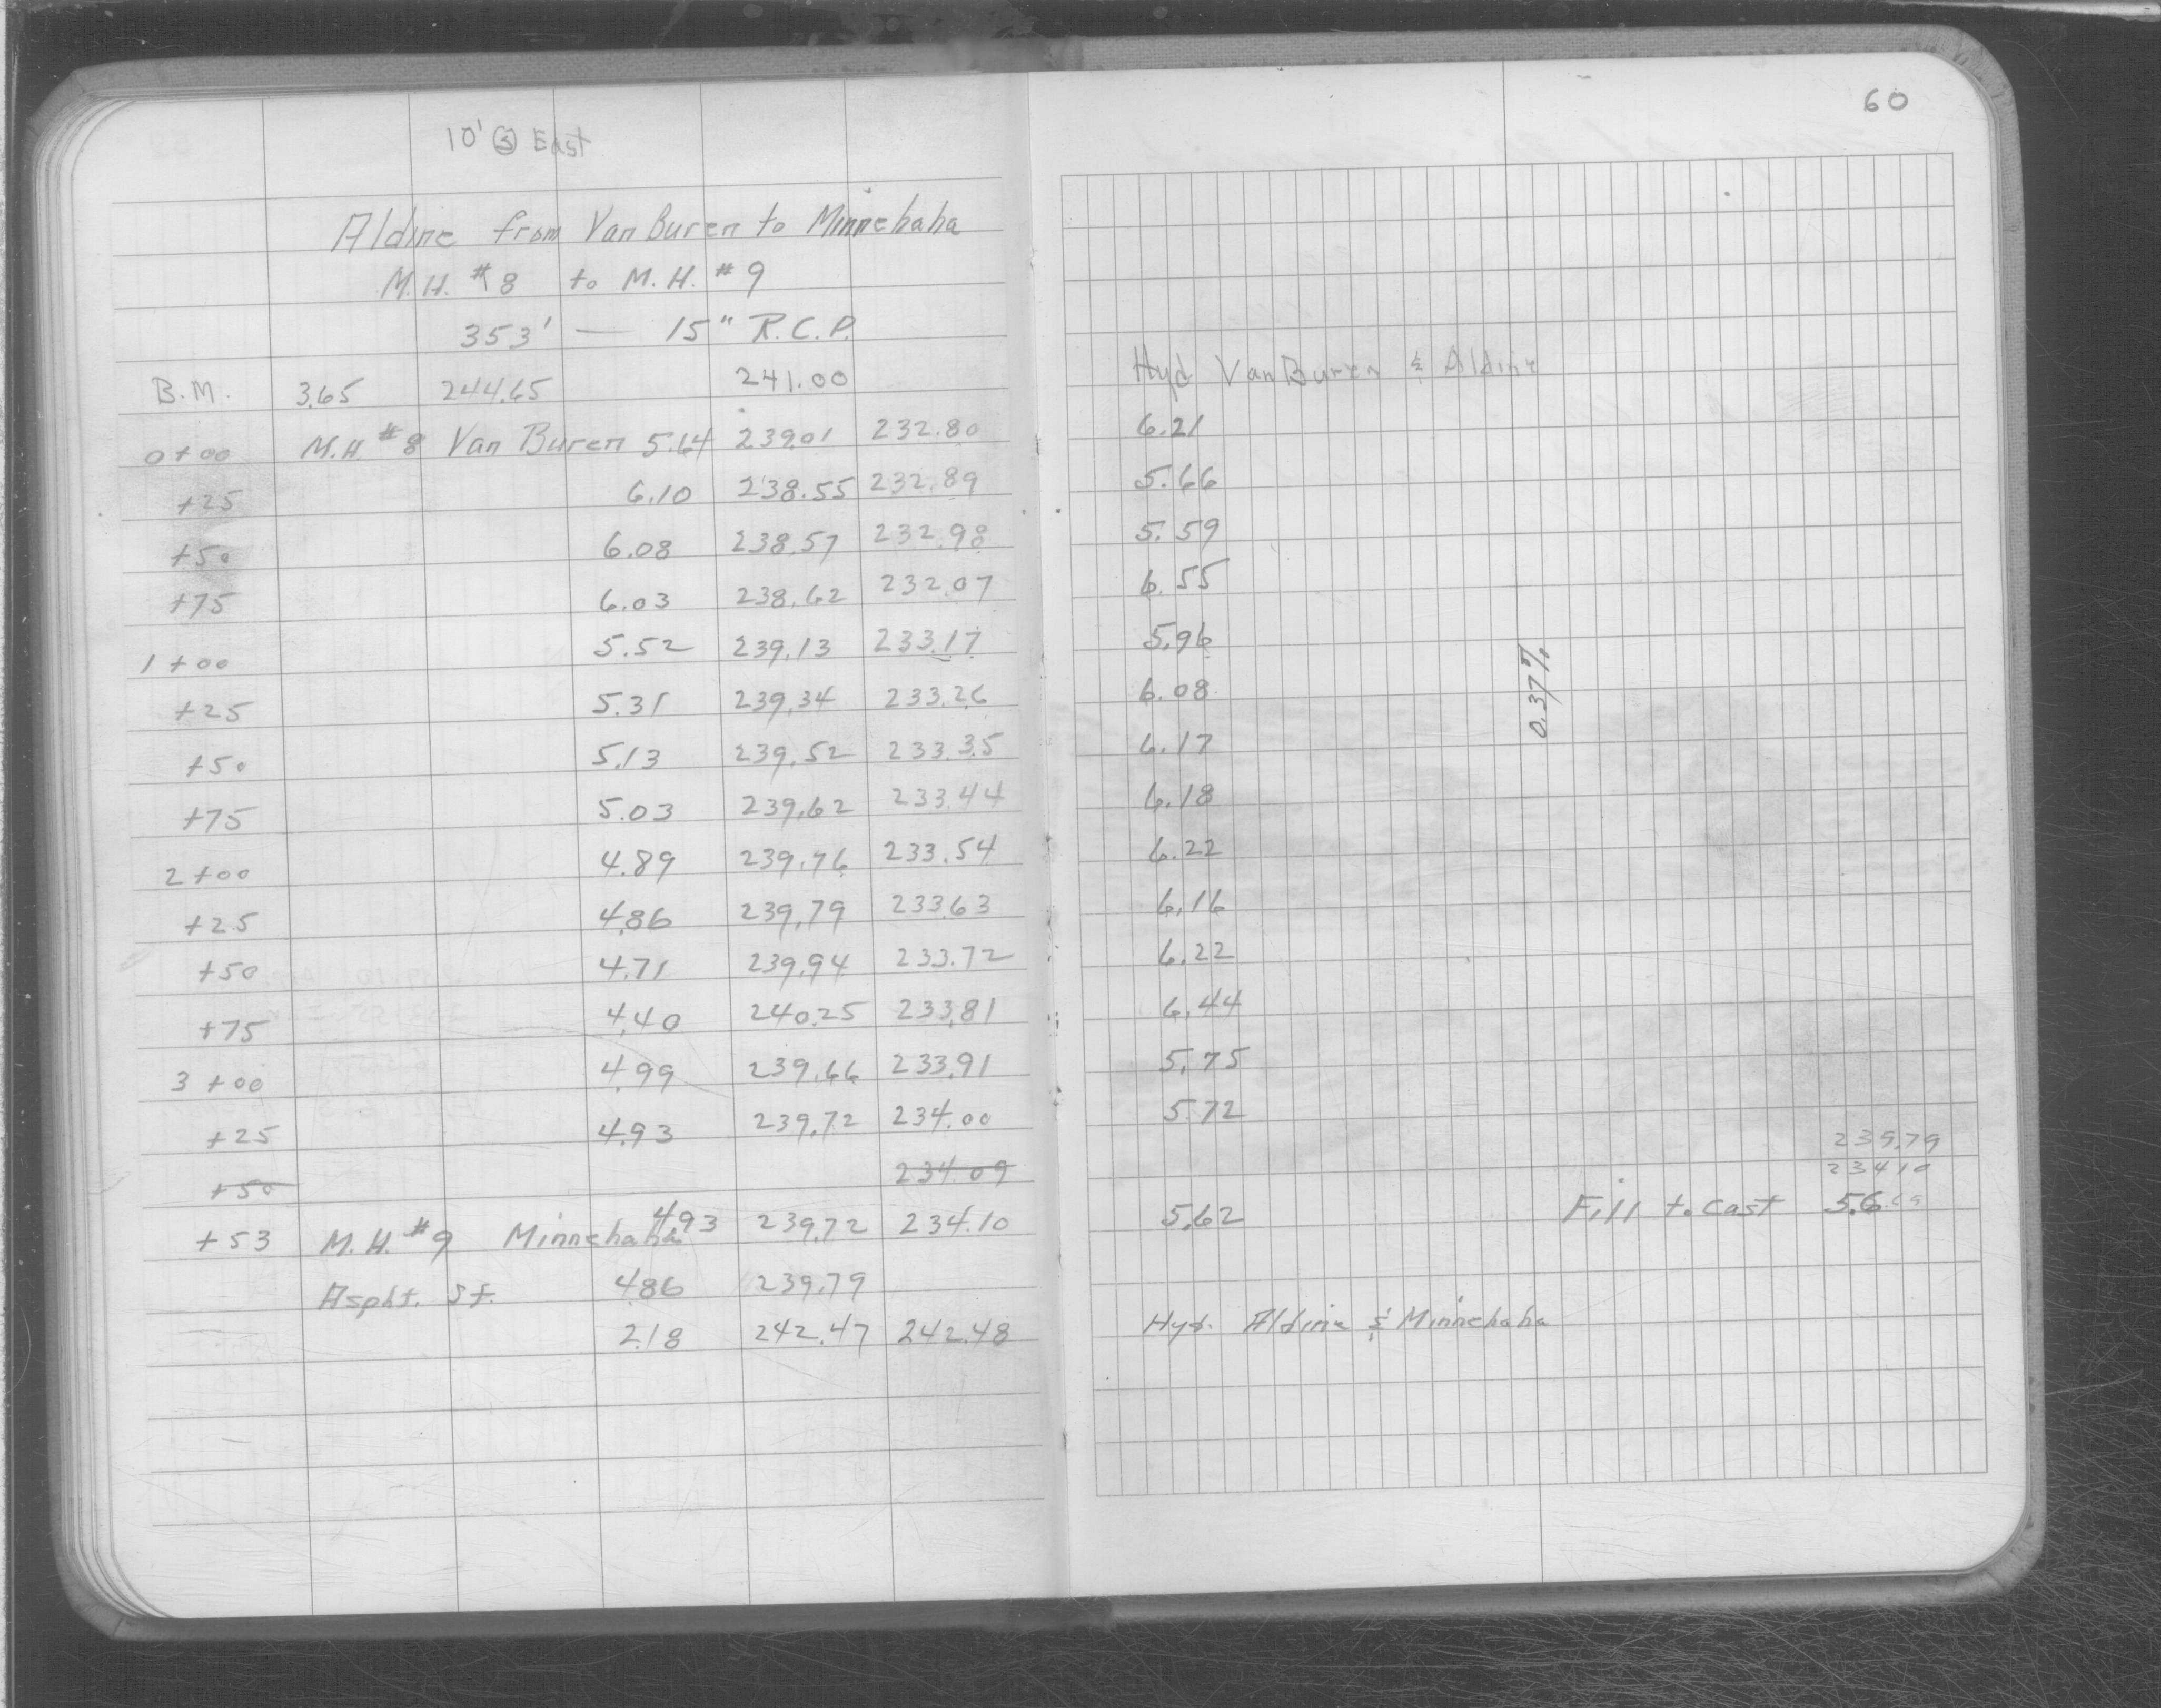 60
10' Ⓢ East
Aldine from Van Buren to Minnehaha
M.H. #8 to M.H. #9
353' — 15" R.C.P.
B.M. 3.65 244.65 241.00 Hyd Van Buren & Aldine
0+00 M.H. #8 Van Buren 5.64 239.01 232.80 6.21
+25 6.10 238.55 232.89 5.66
+50 6.08 238.57 232.98 5.59
+75 6.03 238.62 232.07 6.55
1+00 5.52 239.13 233.17 5.96
+25 5.31 239.34 233.26 6.08
0.37%
+50 5.13 239.52 233.35 6.17
+75 5.03 239.62 233.44 6.18
2+00 4.89 239.76 233.54 6.22
+25 4.86 239.79 233.63 6.16
+50 4.71 239.94 233.72 6.22
+75 4.40 240.25 233.81 6.44
3+00 4.99 239.66 233.91 5.75
+25 4.93 239.72 234.00 5.72
239.79
+50 234.09 234.10
+53 M.H. #9 Minnehaha 4.93 239.72 234.10 5.62 Fill to cast 5.69
Aspht. St. 4.86 239.79
2.18 242.47 242.48 Hyd. Aldine & Minnehaha